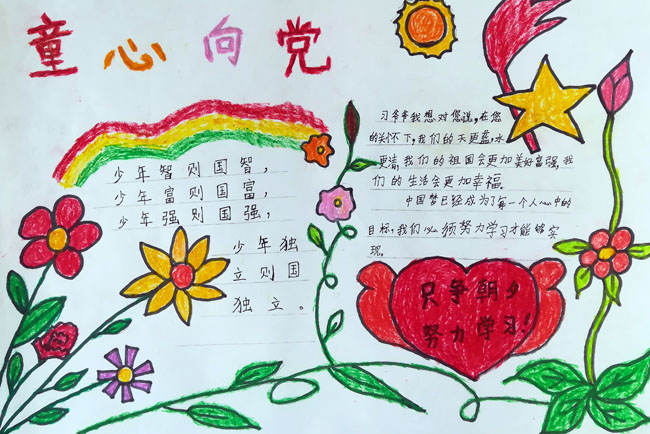 童心向党
少年智则国智，
少年富则国富，
少年强则国强，
少年独
立则国
独立。
习爷爷我想对您说，在您
的关怀下，我们的天更蓝，水
更清，我们的祖国会更加美好富强，我
们的生活会更加幸福。
中国梦已经成为了每一个人心中的
目标，我们必须努力学习才能够实
现。
只争朝夕
努力学习！